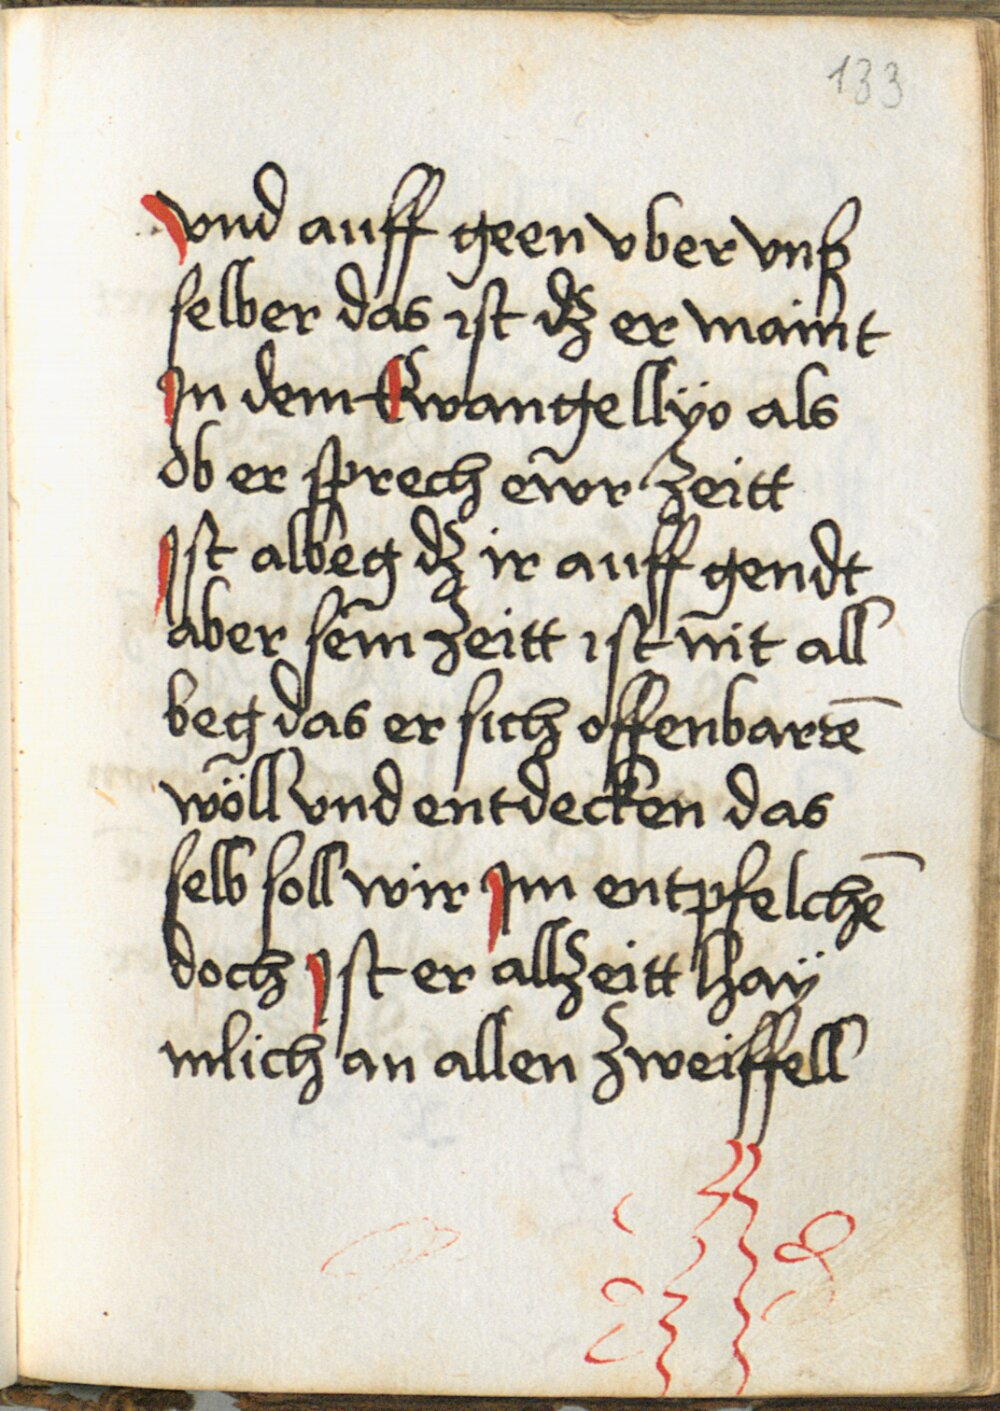 133
vnd auff geen vber vnß
selber das ist dz er maint
In dem Ewangellÿo als
ob er sprech ewr zeitt
Ist albeg dz ir auff gendt
aber sein zeitt ist nit all
beg das er sich offenbarē
wöll vnd entdecken das
selb soll wir Im entpfelchē
doch Ist er allzeitt haÿ
mlich an allen zweiffell